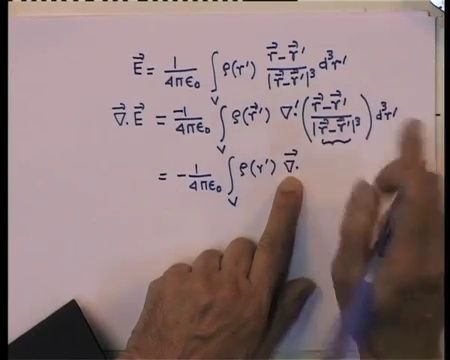 E⃗ = 1/4πϵ₀ ∫_V ρ(r') (r⃗-r⃗')/|r⃗-r⃗'|³ d³r'
∇⃗·E⃗ = -1/4πϵ₀ ∫_V ρ(r⃗') ∇'·((r⃗-r⃗')/|r⃗-r⃗'|³) d³r'
= -1/4πϵ₀ ∫_V ρ(r') ∇⃗·